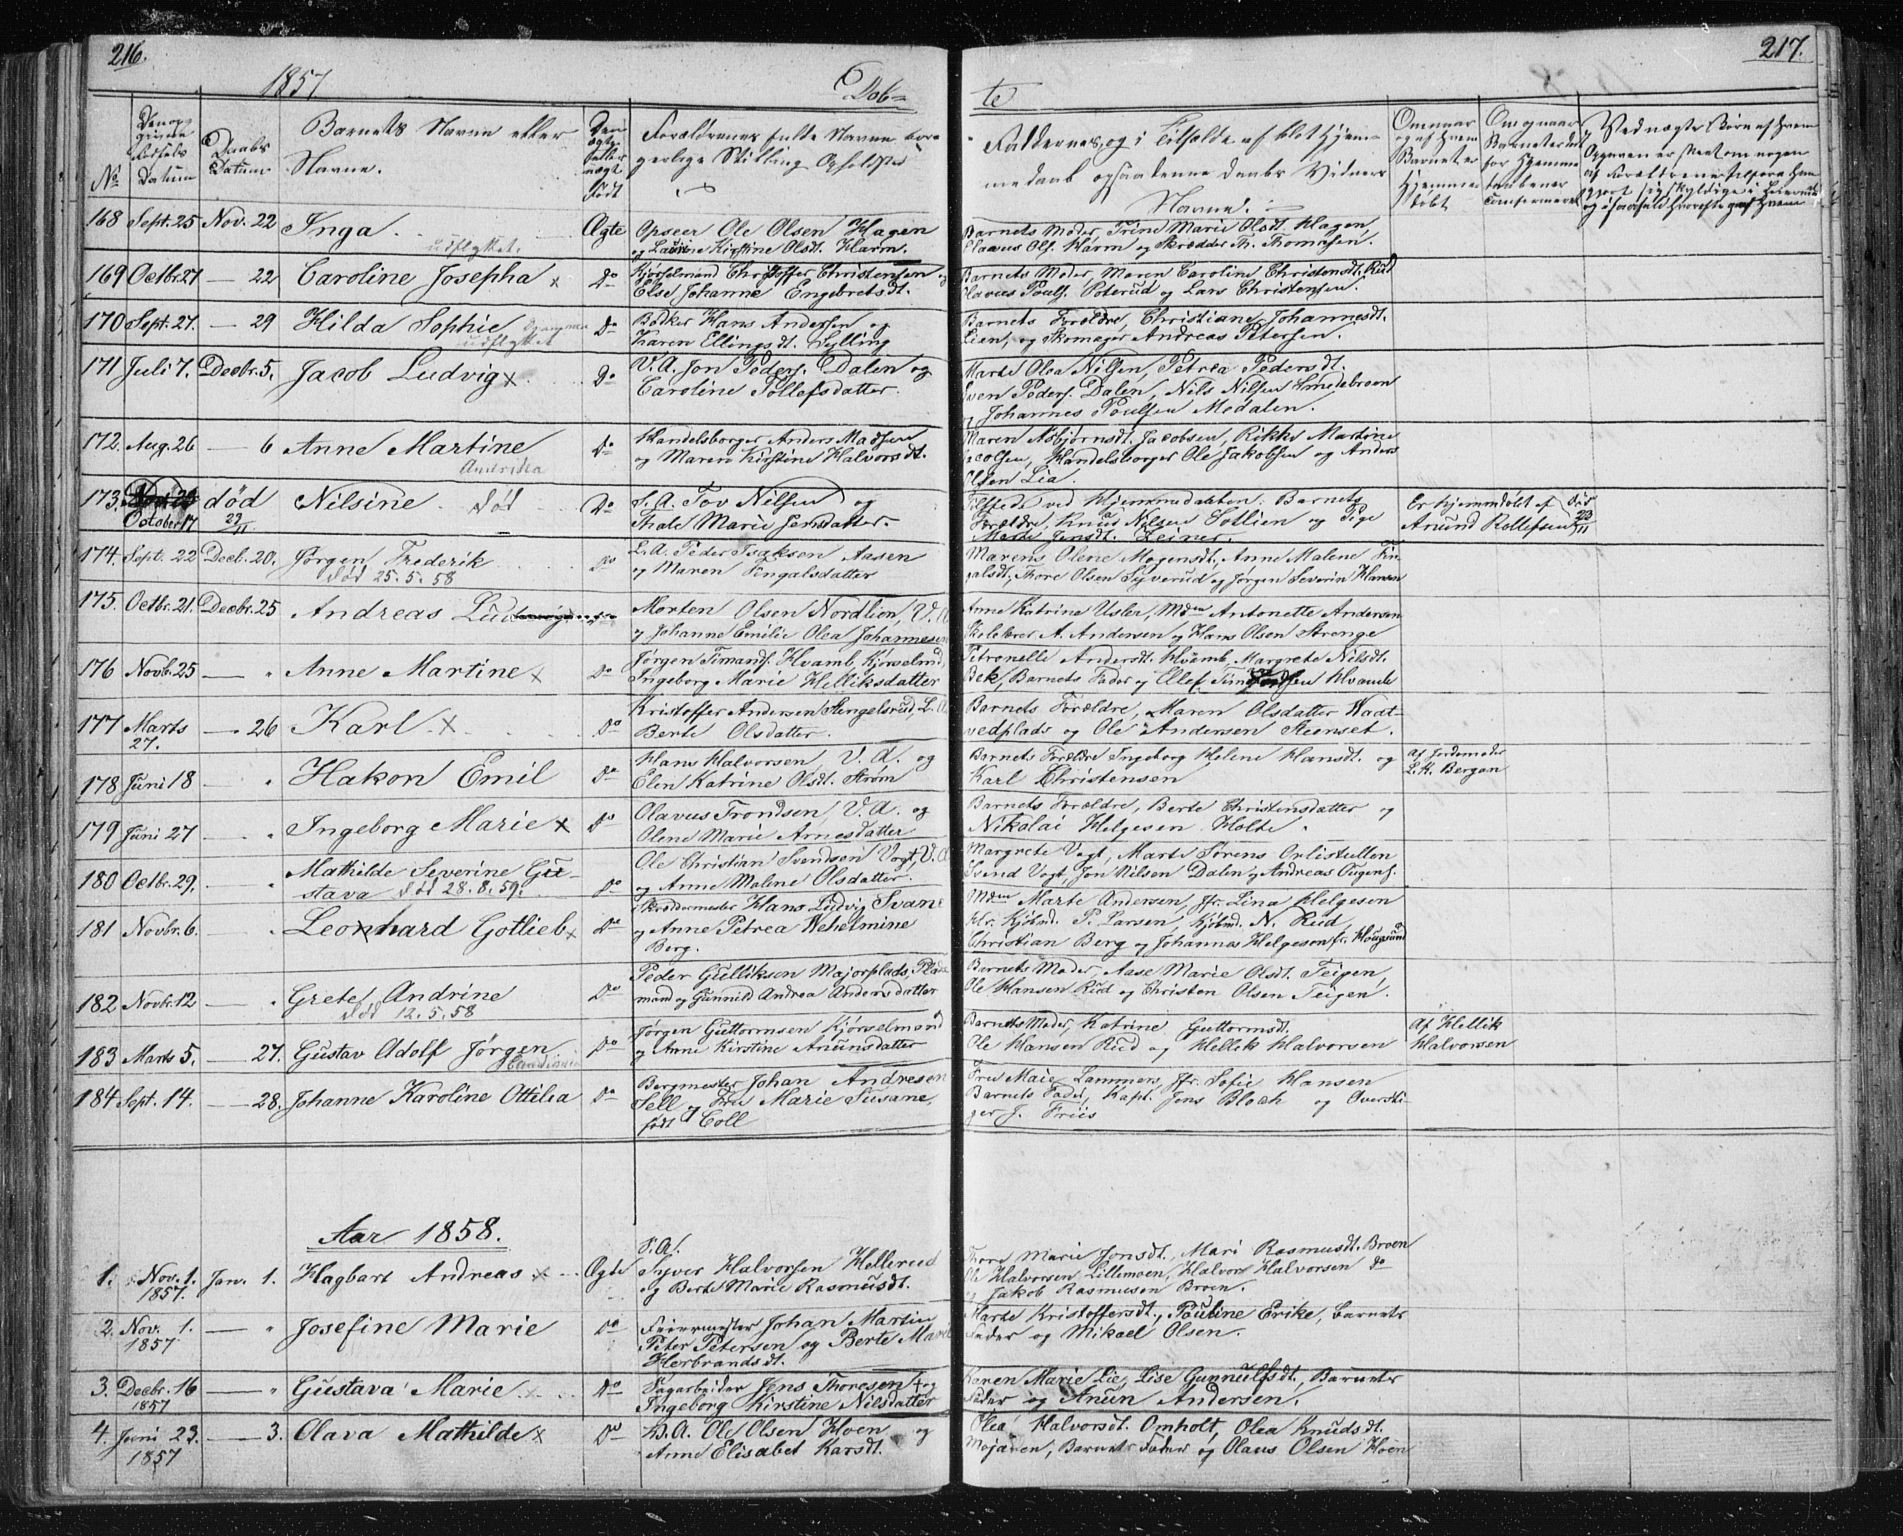 216.
1857
Dob=
No
Den opgivne Fødsels Datum
Daabs Datum
Barnets Navn eller Navne.
Om ægte eller uægte Født
Forældrenes fulde Navne borgerlige Stilling Opholdssted
168 Sept. 25 Nov. 22 Inga. udflyttet. Ægte Opseer Ole Olsen Hagen
og Kirstine Olsdt. Harm.
169 Octbr. 27 — 22 Caroline Josepha x Do Kjørselmand Christoffer Christensen og
Else Johanne Engebretsdt.
170 Sept. 27. — 29 Hilda Sophie udflyttet Do Bødker Hans Andersen og
Karen Ellingsdt. Sylling
171 Juli 7. Decbr. 5. Jacob Ludvig x Do V. A. Jon Peders. Dalen og
Caroline Tollefsdatter.
172. Aug. 26 — 6 Anne Martine Andrika Do Handelsborger Anders Madsen
og Maren Kirstine Halvorsdt.
173. October 17 død 23/11 Nilsine. død Do S. A. Tov Nilsen og
Thale Marie Jensdatter.
174. Sept. 22 Decb. 20. Jørgen Frederik Do L. A. Peder Isaksen Aasen
død 25. 5. 58 og Maren Fingalsdatter
175. Octbr. 21. Decbr. 25 Andreas Do Morten Olsen Nordlien, V. A.
og Johanne Emilie Olea Johannesen
176 Novb. 25 — " Anne Martine x Do Jørgen Timands. Hvamb, Kjørselmd,
Ingeborg Marie Helliksdatter
177 Marts 27. — 26 Karl x Do Kristoffer Andersen Stengelsrud, L. A.
Berte Olsdatter.
178 Juni 18 — " Hakon Emil Do Hans Halvorsen, V. A. og
Elen Katrine Olsdt. Strøm
179 Juni 27 — " Ingeborg Marie x Do Olavus Trondsen, V. A. og
Olene Marie Arnesdatter
180 Octbr. 29. — " Mathilde Severine Gu- Ole Christian Svendsen Vogt, V. A.
stava død 28. 8. 59. Do og Anne Malene Olsdatter.
181 Novbr. 6. — " Leonhard Gotlieb x Do Skræddermester Hans Ludvig Svane
og Anne Petrea Wehelmine
Berg.
182 Novbr. 12 — " Grete Andrine Do Peder Gulliksen Majorplads, Plads-
død 12. 5. 58 mand og Gunnild Andrea Andersdatter
183 Marts 5. — 27. Gustav Adolf Jørgen Do Jørgen Guttormsen Kjørselmand
og Anne Kirstine Anunsdatter
184 Sept. 14. — 28. Johanne Karoline Ottilia Do Bergmester Johan Andresen
Sell og Fru Marie Susane,
født Coll
Aar 1858.
1. Nov. 1. 1857. Jan. 1. Hagbart Andreas x Ægte S. A.
Syver Halvorsen Hellerud
og Berte Marie Rasmusdt.
2. Nov. 1. 1857 — " Josefine Marie Do Feiermester Johan Martin
Peter Petersen og Berte Marie
Herbrandsdt.
3. Decbr. 16 1857 — " Gustava Marie Do Sagarbeider Jens Thoresen og
Ingeborg Kirstine Nilsdatter
4. Juni 23. 1857 — 3. Olava Mathilde x Do B. A. Ole Olsen Hoen og
Anne Elisabet Karsdt.
217.
te
Faddernes, og i Tilfælde af blot Hjem-
medaab ogsaa denne Daabs Vidners
Navne.
Om og af Hvem Barnet er Hjemme døbt
Barnets Moder, Trine Marie Olsdt. Hagen
Olavus Ols. Harm og Skrædder Th. Thomesen.
Barnets Moder, Maren Caroline Christensdt. Rud
Olavus Pouls. Poterud og Lars Christensen.
Barnets Forældre, Christiane Johannesdt.
Lien, og Skomager Andreas Petersen.
Marte Olea Nilsen, Petrea Pedersdt.
Even Peders. Dalen, Nils Nilsen Smedebroen
og Johannes Poulsen Modalen.
Maren Asbjørnsdt. Jacobsen, Rikke Martine
Jacobsen, Handelsborger Ole Jakobsen og Anders
Olsen Lia.
Tilstede ved Hjemmedaaben. Barnets
Forældre, Knud Nilsen Sollien og Pige
Marte Jensdt. Zeiner.
Er hjemmdøbt af
Amund Rollefsen 23/11
Marens Olene Mogensdt., Anne Malene Fin-
galsdt., Thore Olsen Syverud og Jørgen Severin Hansen
Anne Katrine Usler, Mdm Antonette Andersen
Skolelærer A. Andersen og Hans Olsen Stronge
Petronelle Andersdt. Hvamb, Margrete Nilsdt.
Bek, Barnets Fader og Ellef Hvamb
Barnets Forældre, Maren Olsdatter Wadt-
vedplads og Ole Andersen Steenset.
Barnets Forældre Ingeborg Helene Hansdt. og
Karl Christensen
Af Jordemoder
L. H. Bergan
Barnets Forældre, Berte Christensdatter og
Nikolai Helgesen Holte.
Margrete Vogt, Marte Sørens Orlistullen
Svend Vogt, Jon Nilsen Dalen og Andreas Eugens.
Mdm Marte Andersen, Jfr. Lina Helgesen
Hr. Kjøbmd. P. Larsen, Kjøbmd. N. Rud,
Christian Berg og Johannas Helgesen fr. Hougsund
Barnets Moder, Aase Marie Olsdt. Teigen,
Ole Hansen Rud og Christen Olsen Teigen.
Barnets Moder, Katrine Guttormsdt.
Ole Hansen Rud og Hellik Halvorsen
Af Hellik
Halvorsen
Fru Maie Lammers, Jfr. Sofie Hansen
Barnets Fader, Kapt. Jens Bloch og Oversti-
ger J. Friis
Thore Marie Jonsdt., Mari Rasmusdt. Broen
Ole Halvorsen Lillemoen, Halvor Halvorsen do
og Jakob Rasmusen Broen.
Marte Kristoffersdt., Pauline Erike, Barnets
Fader og Mikael Olsen.
Karen Marie Lie, Lise Gunnulfsdt., Barnets
Fader og Anun Andersen.
Olea Halvorsdt. Omholt, Olea Knudsdt.
Mojaren, Barnets Fader og Olaus Olsen Hoen